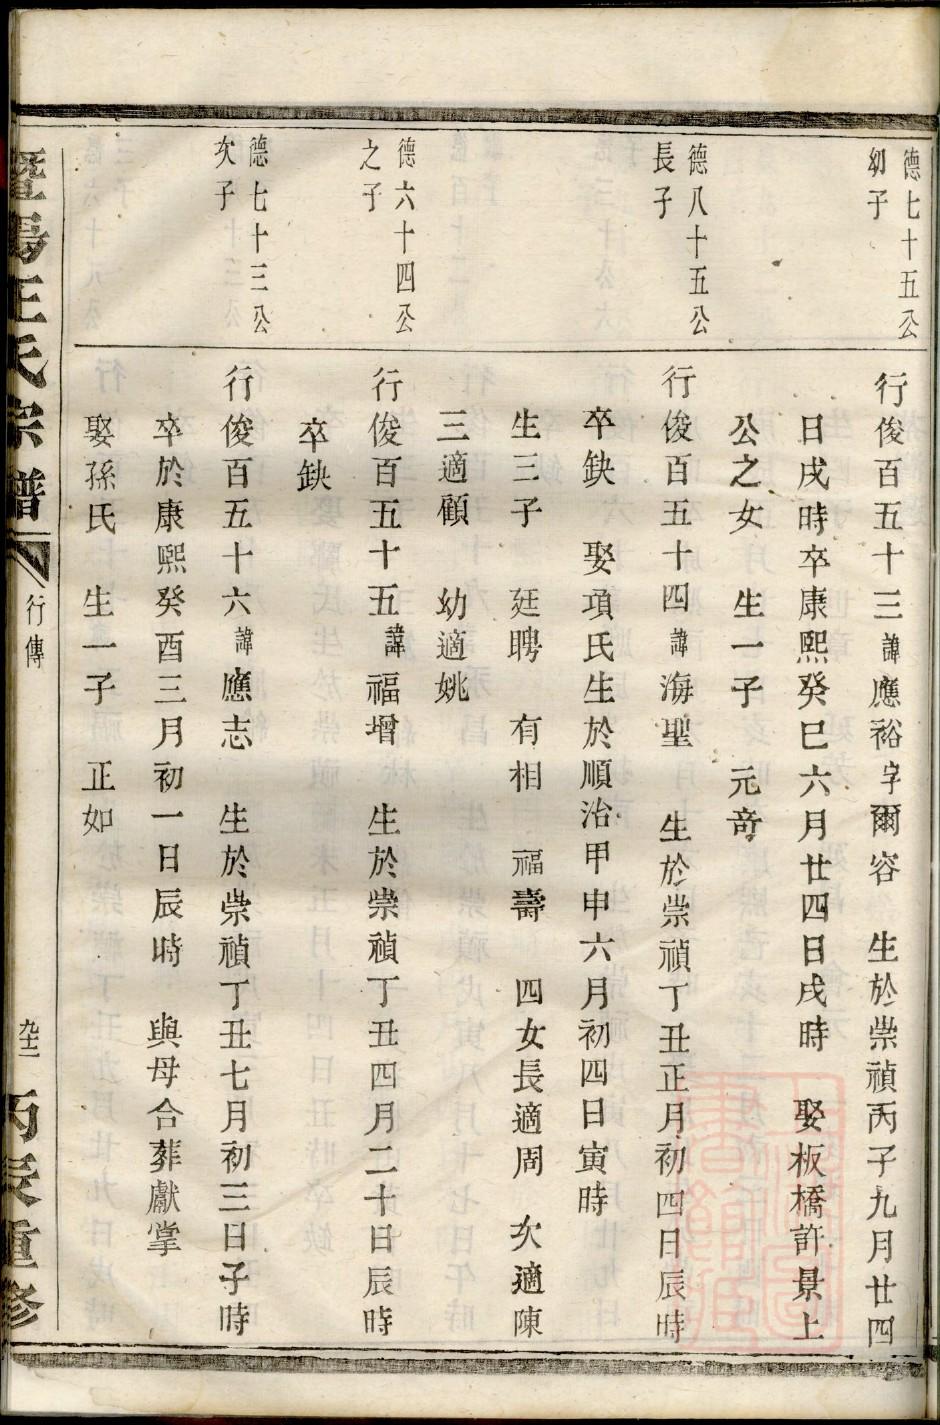 德七十五公
幼子
行俊百五十三諱應裕字爾容 生於崇禎丙子九月廿四
日戌時卒康熙癸巳六月廿四日戌時 娶板橋許景上
公之女 生一子 元竒
德八十五公
長子
行俊百五十四諱海聖 生於崇禎丁丑正月初四日辰時
卒缺 娶項氏生於順治甲申六月初四日寅時
生三子 廷聘 有相 福壽 四女長適周 次適陳
三適顧 幼適姚
德六十四公
之子
行俊百五十五諱福增 生於崇禎丁丑四月二十日辰時
卒缺
德七十三公
次子
行俊百五十六諱應志 生於崇禎丁丑七月初三日子時
卒於康熙癸酉三月初一日辰時 與母合葬獻掌
娶孫氏 生一子 正如
暨陽王氏宗譜 行傳 丙辰重修